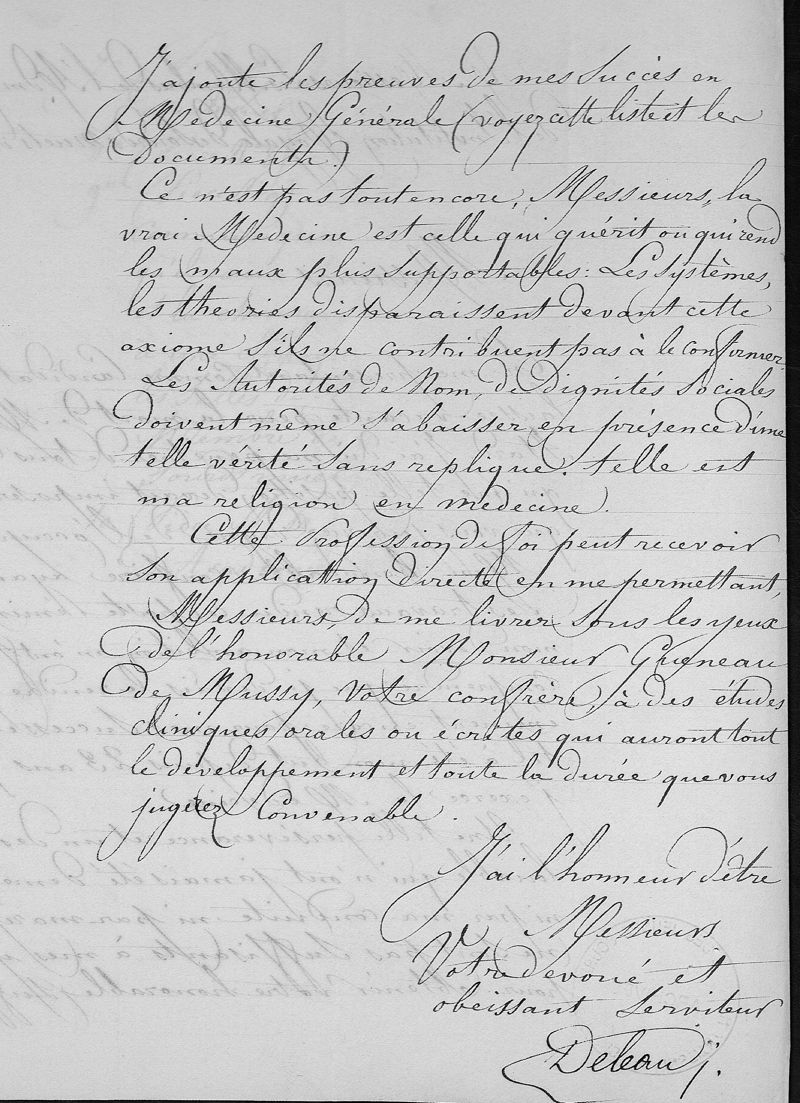 J'ajoute les preuves de mes succès en
Medecine Générale (voyez cette liste et les
documents.)
Ce n'est pas tout encore, Messieurs, la
vrai Medecine est celle qui guérit ou qui rend
les maux plus supportables : Les systèmes,
les theories disparaissent devant cette
axiome s'ils ne contribuent pas à le confirmer.
Les Autorités de Nom, de Dignités Sociales
doivent même s'abaisser en présence d'une
telle vérité sans replique. telle est
ma religion en medecine.
Cette Profession de foi peut recevoir
son application directe en me permettant,
Messieurs, de me livrer sous les yeux
de l'honorable Monsieur Gueneau
de Mussy, votre confrère, à des études
cliniques orales ou écrites qui auront tout
le developpement et toute la durée que vous
jugerez Convenable.
J'ai l'honneur d'être
Messieurs
Votre devoué et
obeissant Serviteur
Deleau j.